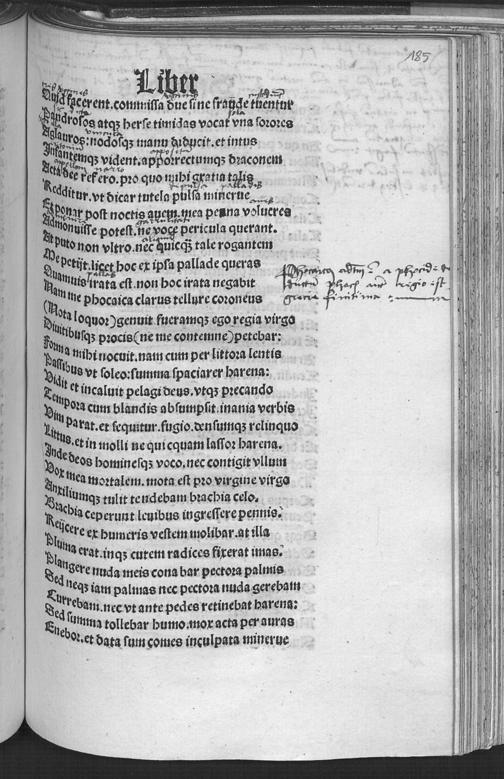 185
Liber
Quid facerent. commissa due sine fraude tuentur
Pandrosos atqꝫ herse timidas vocat vna sorores
Aglauros: nodosqꝫ manu diducit. et intus
Infantemqꝫ vident. apporrectumqꝫ draconem
Acta dee refero. pro quo mihi gratia talis
Redditur. vt dicar tutela pulsa minerue
Et ponar post noctis auem. mea penna volucres
Admonuisse potest. ne voce pericula querant.
At puto non vltro. nec quicqꝫ tale rogantem
Me petijt. licet hoc ex ipsa pallade queras
Quamuis irata est. non hoc irata negabit
Nam me phocaica clarus tellure coroneus
(Nota loquor) genuit. fueramqꝫ ego regia virgo
Diuitibusqꝫ procis (ne me contemne) petebar:
Forma mihi nocuit. nam cum per littora lentis
Passibus vt soleo: summa spaciarer harena:
Vidit et incaluit pelagi deus. vtqꝫ precando
Tempora cum blandis absumpsit. inania verbis
Vim parat. et sequitur. fugio. densumqꝫ relinquo
Littus. et in molli ne quicquam lassor harena.
Inde deos hominesqꝫ voco. nec contigit vllum
Vox mea mortalem. mota est pro virgine virgo
Auxiliumqꝫ tulit tendebam brachia celo.
Brachia ceperunt leuibus ingressere pennis.
Reijcere ex humeris vestem molibar. at illa
Pluma erat. inqꝫ cutem radices fixerat imas.
Plangere nuda meis conabar pectora palmis
Sed neqꝫ iam palmas nec pectora nuda gerebam
Currebam. nec vt ante pedes retinebat harena:
Sed summa tollebar humo. mox acta per auras
Euehor. et data sum comes inculpata minerue